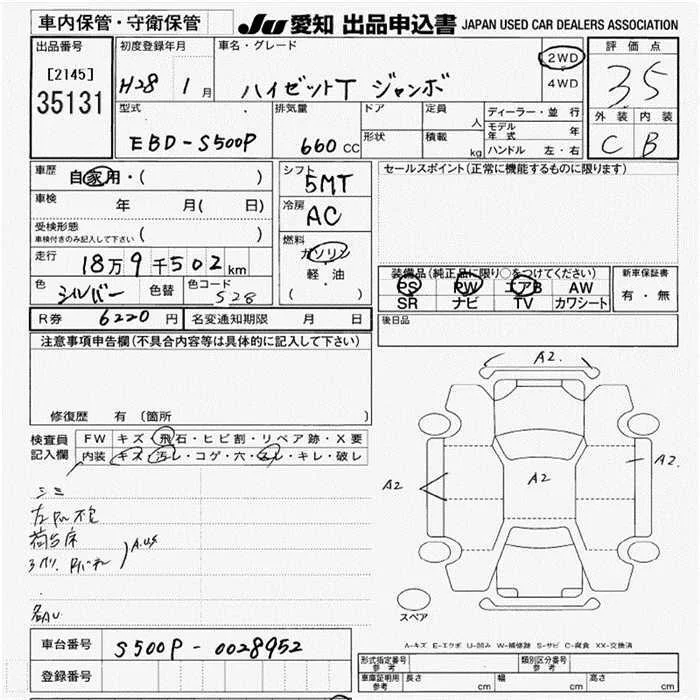 車内保管・守衛保管
JU 愛知 出品申込書 JAPAN USED CAR DEALERS ASSOCIATION
出品番号
[2145]
35131
初度登録年月
H28 1月
車名・グレード
ハイゼットT ジャンボ
2WD
4WD
評価点
35
外装 内装
C B
型式
EBD-S500P
排気量
660 CC
ドア
形状
定員 人
積載 kg
ディーラー・並行
モデル年式 年
ハンドル 左・右
車歴 自家用・( )
車検 年 月( 日)
受検形態 ( )
車検付きのみ記入して下さい
走行 18万9千502km
色 シルバー 色替 色コード S28
シフト
5MT
冷房
AC
燃料
ガソリン
軽・油
( )
セールスポイント(正常に機能するものに限ります)
装備品(純正品に限り○をつけてください)
PS PW エアB AW
SR ナビ TV カワシート
新車保証書
有・無
R券 6220円 名変通知期限 月 日
後日品
注意事項申告欄(不具合内容等は具体的に記入して下さい)
修復歴 有 (箇所 )
検査員記入欄
FW キズ・飛石・ヒビ割・リペア跡・X要
内装 キズ・汚レ・コゲ・穴・スレ・キレ・破レ
荷台床
A2.
A2
A2
A2.
スペア
A-キズ E-エクボ U-凹み W-補修跡 S-サビ C-腐食 XX-交換済
車台番号 S500P-0028952
登録番号
形式指定番号 参考
類別区分番号 参考
車庫証明用 参考 長さ cm 幅 cm 高さ cm